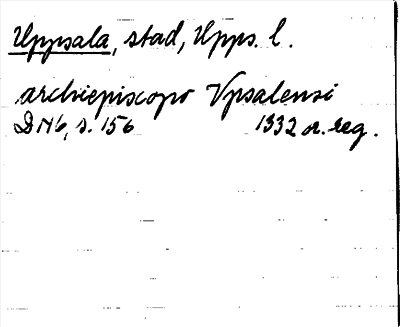 Uppsala, stad, Upps. l.
archiepiscopo Vpsalensi
DN 6, s. 156 1332 or. reg.